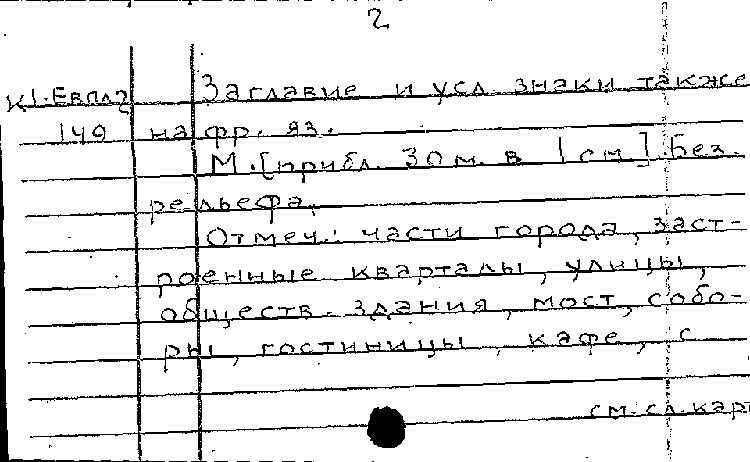 2
К1.Евпл2 Заглавие и усл. знаки также
149 на фр. яз.
М.[прибл. 30 м. в 1 см]. Без.
рельефа.
Отмеч.: части города, заст-
роенные кварталы, улицы,
обществ. здания, мост, собо-
ры, гостиницы, кафе, с
см.сл.карт